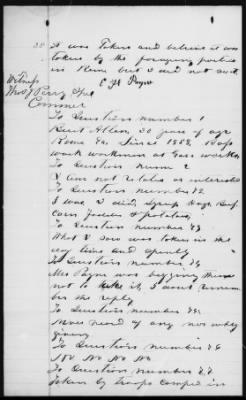 30 it was Taken and believe it was
taken by the foraging parties
in Rome but I did not ask
E M Payne
Witness
Thos J Perry Spl
Commr
To Question number 1
Burt Allen, 30 years of age
Rome Ga. Since 1868,
work workmen at Gas works
To Question num 2
I am not related or interested
To Question number 72
I was I did, Syrup Hogs Beef
Corn fodder & potatoes,
To Question number 73
What I saw was taken in the
day time and openly
To Question number 76
Mrs Payne was begging them
not to take it, I dont remem
ber the reply
To Question number
Never heard of any
given
To Question number 76
No No No No
To Question number 77
Taken by troops camped in